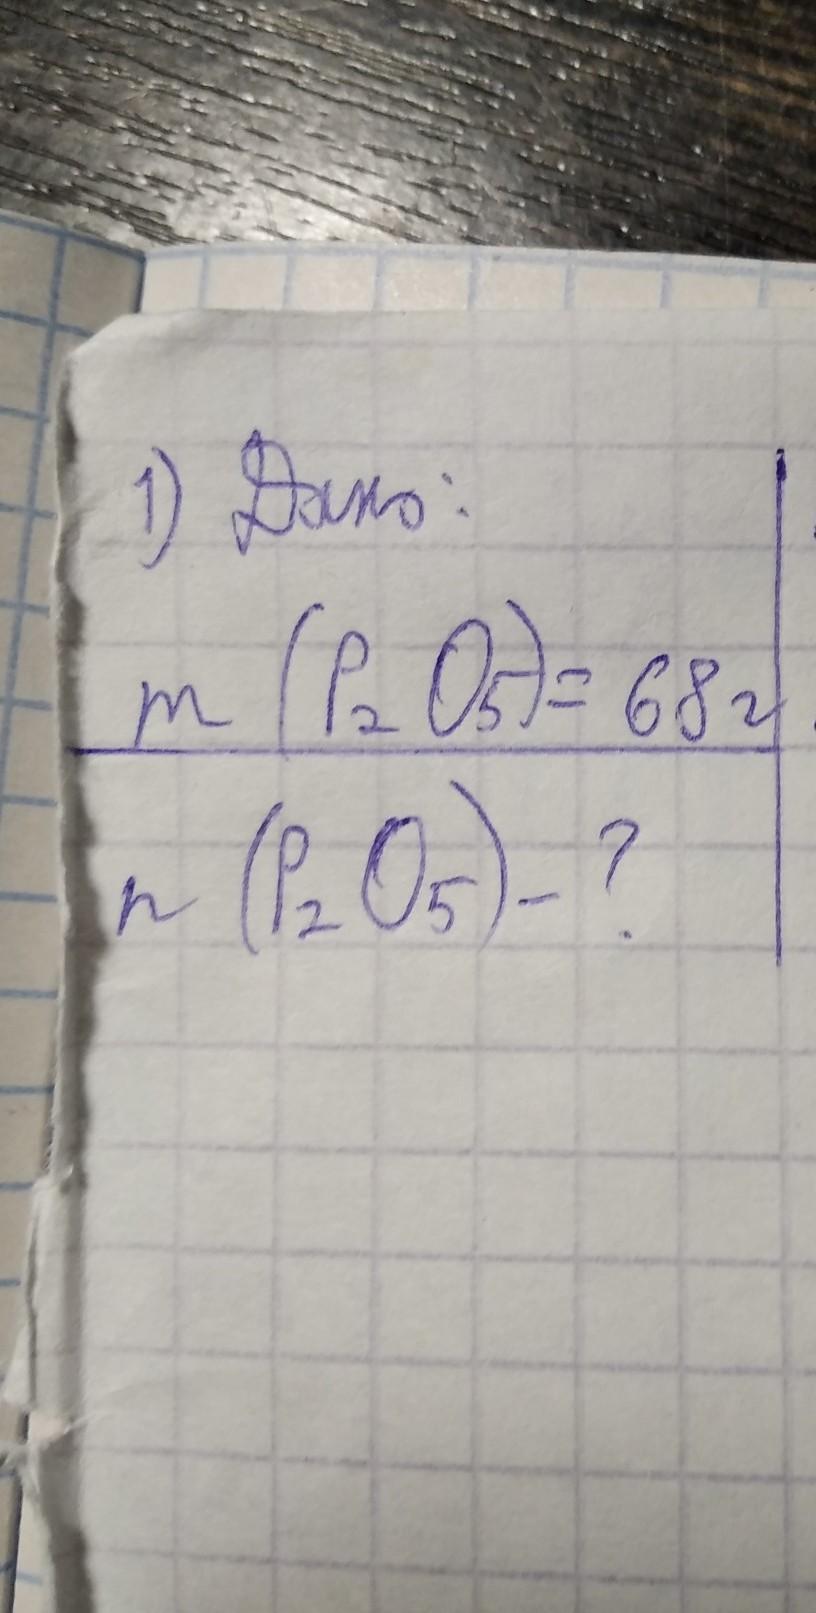 1) Дано:
m (P₂O₅) = 68г
n (P₂O₅) - ?